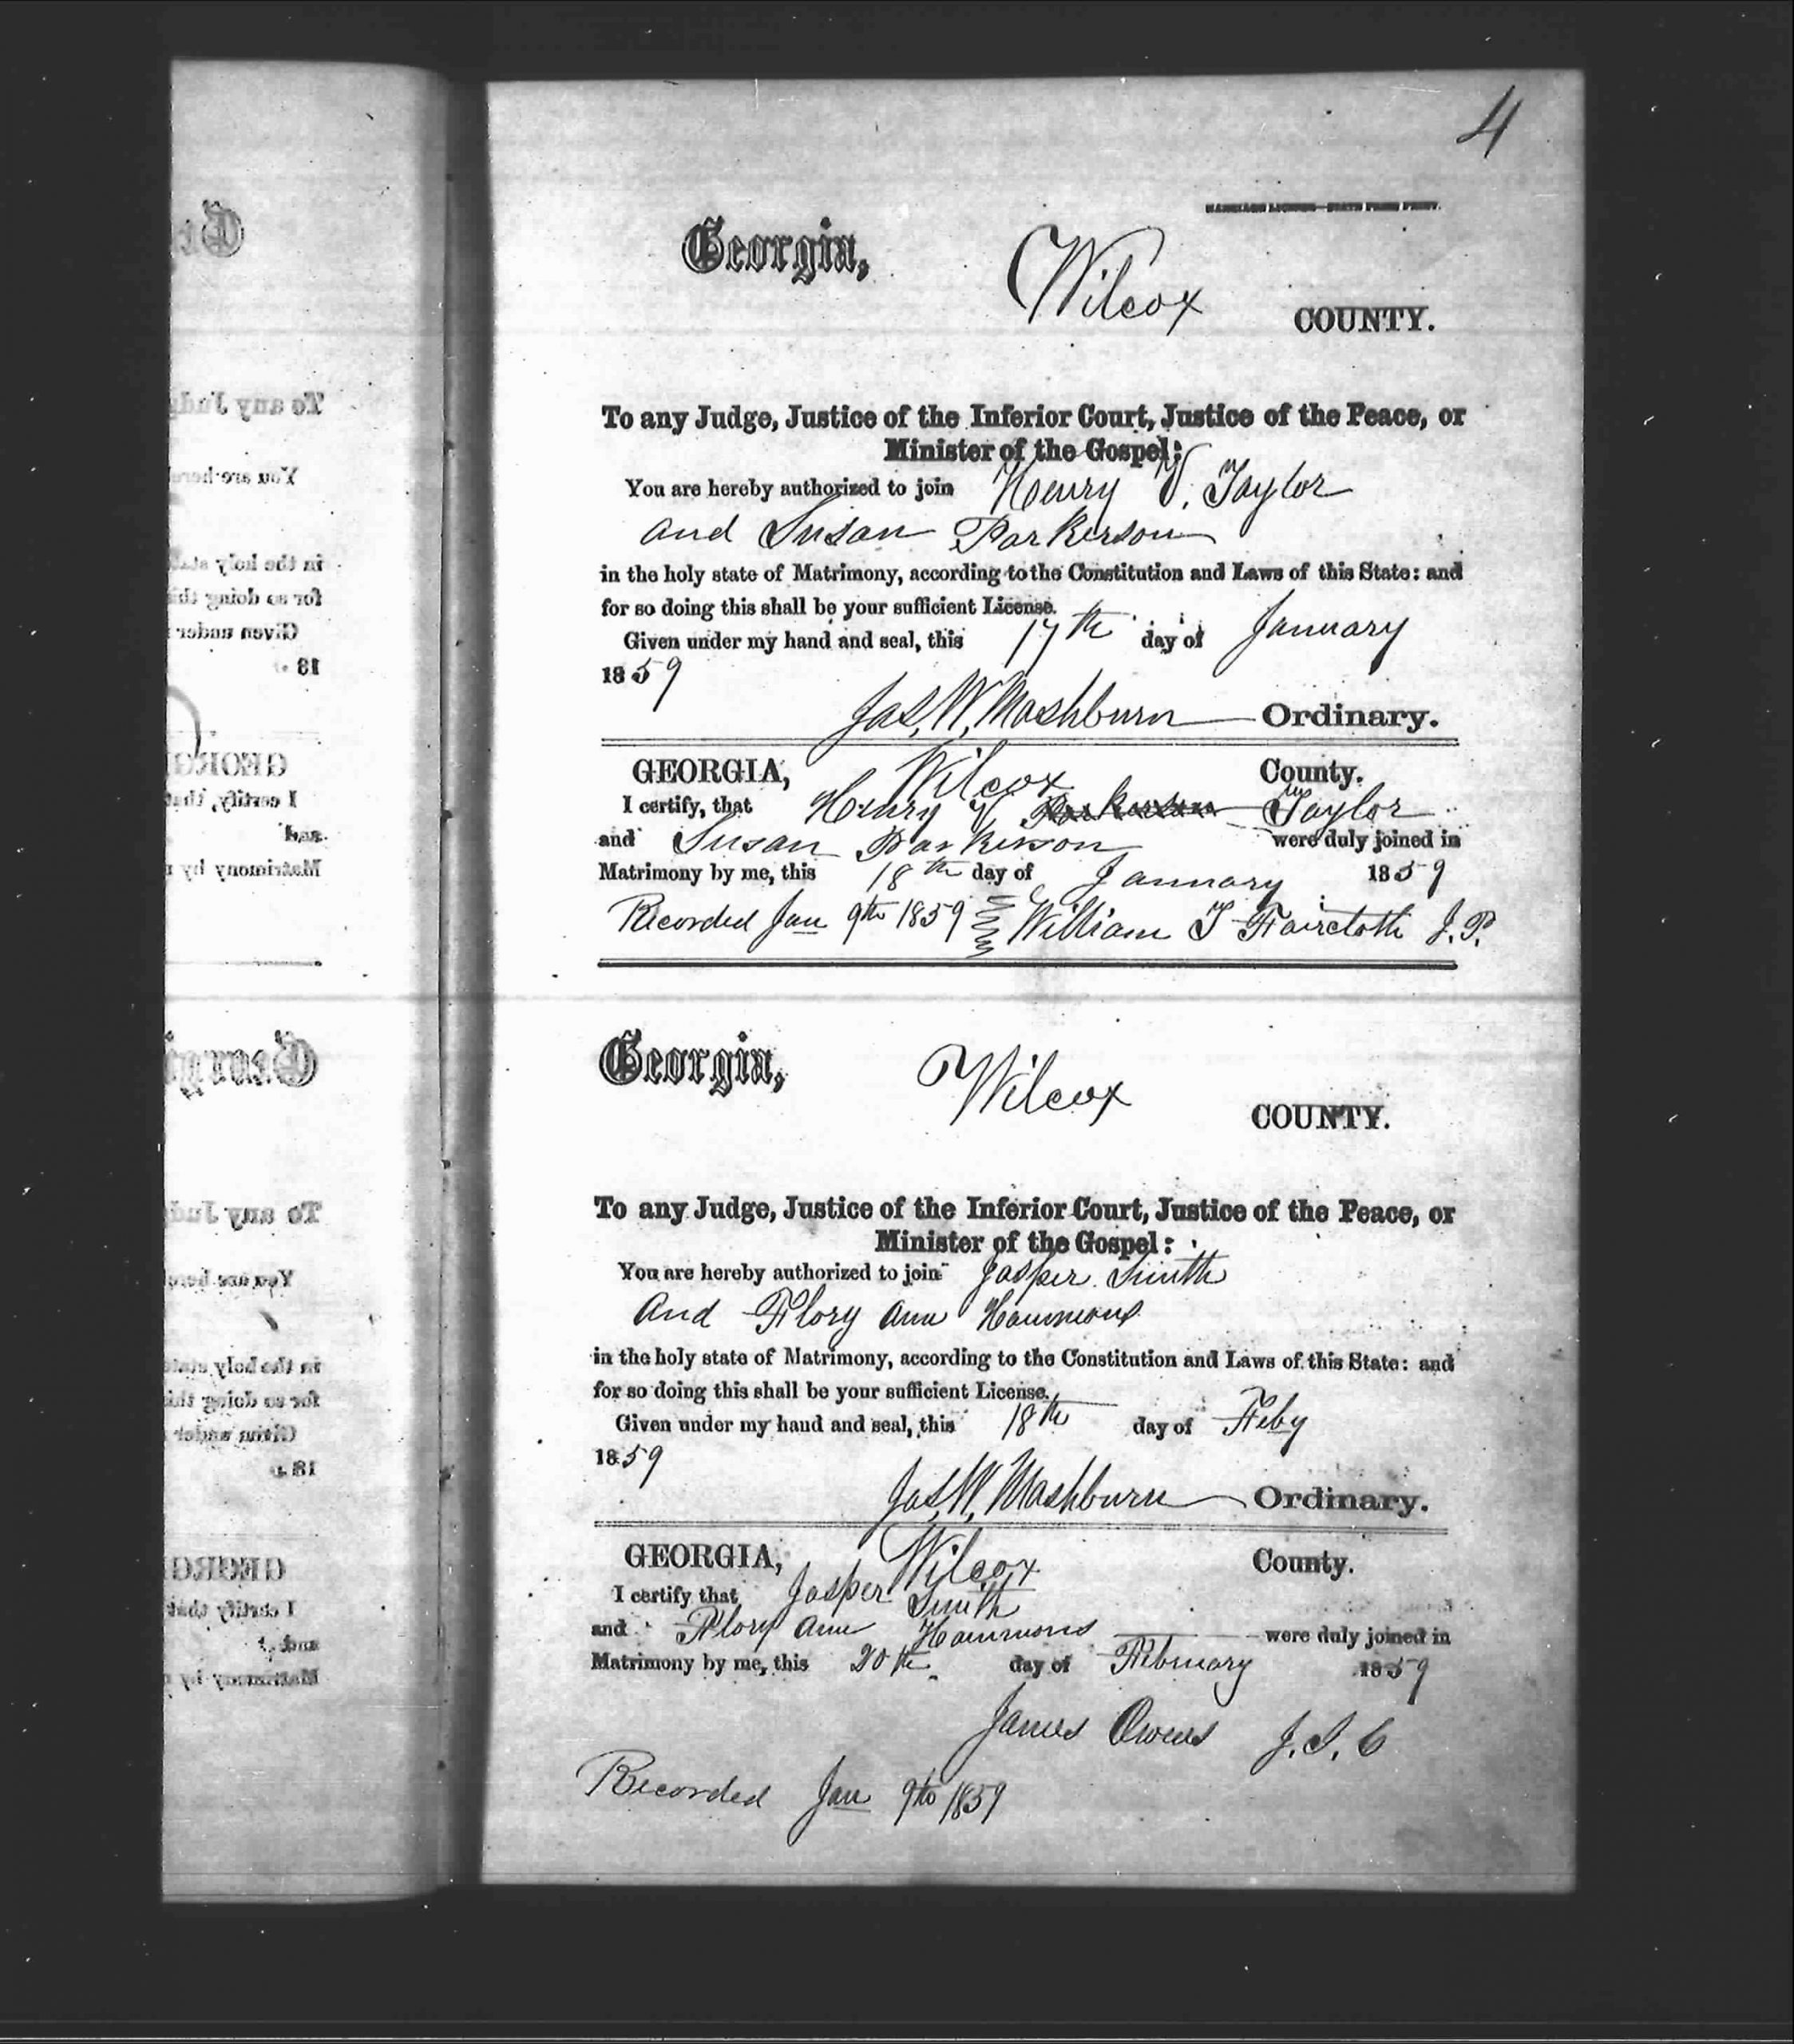 4
MARRIAGE LICENSE—STATE PRESS PRINT.
Georgia, Wilcox COUNTY.
To any Judge, Justice of the Inferior Court, Justice of the Peace, or
Minister of the Gospel:
You are hereby authorized to join Henry V. Taylor
and Susan Parkerson
in the holy state of Matrimony, according to the Constitution and Laws of this State: and
for so doing this shall be your sufficient License.
Given under my hand and seal, this 17th day of January
1859
Jas. W. Mashburn Ordinary.
GEORGIA, Wilcox County.
I certify, that Henry V Parkerson Taylor
and Susan Parkerson were duly joined in
Matrimony by me, this 18th day of January 1859
Recorded Jan 9th 1859 William T Faircloth J.P.
Georgia, Wilcox COUNTY.
To any Judge, Justice of the Inferior Court, Justice of the Peace, or
Minister of the Gospel:
You are hereby authorized to join Jasper Smith
And Flory Ann Hammons
in the holy state of Matrimony, according to the Constitution and Laws of this State: and
for so doing this shall be your sufficient License.
Given under my hand and seal, this 18th day of Feby
1859
Jas. W. Mashburn Ordinary.
GEORGIA, Wilcox County.
I certify that Jasper Smith
and Flory Ann Hammons were duly joined in
Matrimony by me, this 20th day of February 1859
James Owens J.I.C
Recorded Jan 9th 1859